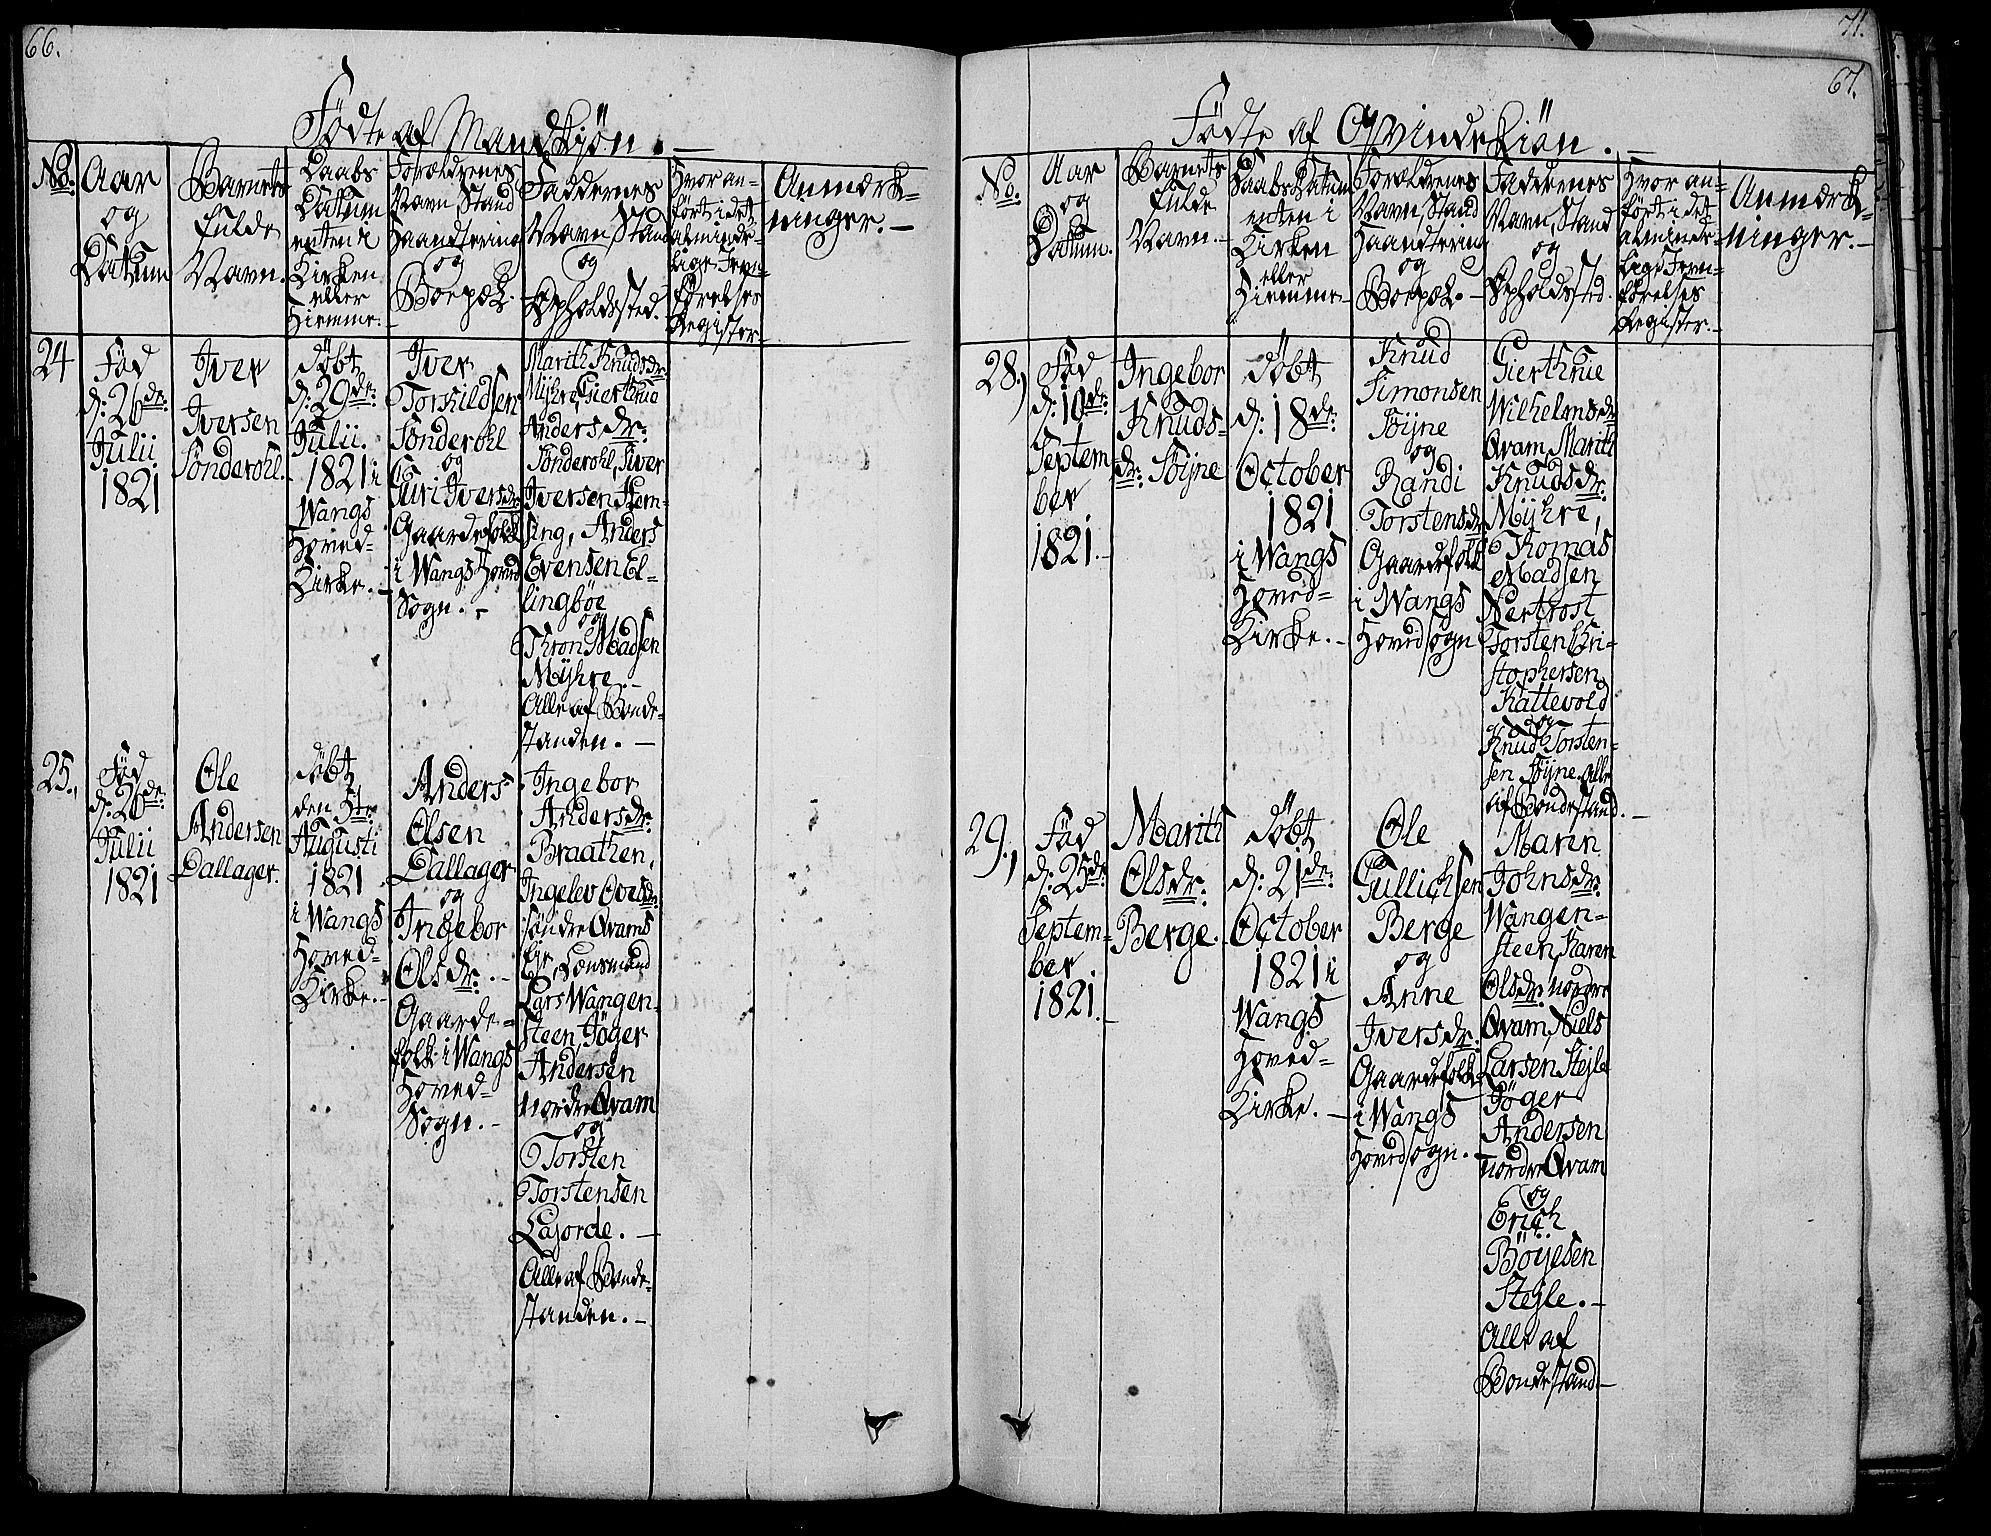 66.
Fødte af Mandkjøn. –
No.
Aar
og
Dattum
Barnets
fulde
Navn.
Daabs
Dattum
enten i
Kirken
eller
Hiemme.
Forældrenes
Navn, Stand
Haandtering
og
Boepæl.
Faddernes
Navn, Stand
og
Opholdssted.
Hvor an-
ført i det
alminde-
lige Jevn-
førelses
Register.
Anmærk-
ninger. –
24
Fød
d: 26de
Julii
1821
Iver
Iversen
Sønderohl.
døbt
d: 29de
Julii.
1821 i
Wangs
Hoved-
Kirke. –
Iver
Torkildsen
Sønderohl
og
Guri Iversdr.
Gaardefolk
i Wangs Hoved
Sogn. –
Marith Knudsdr.
Myhre, Gierthrue
Andersdr.
Sønderohl, Siver
Iversen Hem-
sing, Anders
Evensen El-
lingbøe
og
Thron Madsen
Myhre. –
Alle af Bonde-
standen. –
25.
Fød
d: 26de
Julii
1821
Ole
Andersen
Dallager.
døbt
den 5te
Augusti
1821
i Wangs
Hoved-
Kirke. –
Anders
Olsen
Dallager
og
Ingebor
Olsdr. –
Gaarde-
folk i Wangs
Hoved-
Sogn. –
Ingebor
Andersdr.
Braathen,
Ingelev Ovesdr.
søndre Qvams
Eje, Lensmand
Lars Wangen-
steen, Jöger
Andersen
nordre Qvam
og
Torsten
Torstensen
Lajorde. –
Alle af Bonde-
standen. –
71.
67.
Fødte af Qvindekiøn. –
No.
Aar
og
Dattum.
Barnets
fulde
Navn. –
Daabs Datum
enten i
Kirken
eller
Hiemme –
Forældrenes
Navn, Stand
Haandtering
og
Boepæl. –
Faddernes
Navn, Stand
og
Opholdssted.
Hvor an-
ført i det
alminde-
lige Jevn-
førelses
Register. –
Anmærk-
ninger. –
28.,
Fød
d: 10de
Septem-
ber
1821. –
Ingebor
Knuds-
dr. Søyne
døbt
d: 18de
October
1821
i Wangs
Hoved-
Kirke. –
Knud
Simonsen
Søyne
og
Randi
Torstensdr.
Gaardefolk
i Wangs
Hovedsogn
Gierthrue
Wilhelmsdr.
Qvam, Marith
Knudsdr.
Myhre,
Thomas
Madsen
Nertrost
Torsten Chri-
stophersen
Kattevold
og
Knud Torsten-
sen Søyne. Alle
af Bondestand. –
29.,
Fød
d: 25de
Septem-
ber
1821. –
Marith
Olsdr.
Berge.
døbt
d: 21de
October
1821 i
Wangs
Hoved-
Kirke. –
Ole
Gullichsen
Berge
og
Anne
Iversdr.
Gaardefolk
i Wangs
Hovedsogn. –
Maren
Johnsdr.
Wangen-
steen, Karen
Olsdr. nordre
Qvam, Niels
Larsen Stejle
Jöger
Andersen
nordre Qvam
og
Erich
Böyesen
Stejle. –
Alle af
Bondestand. –